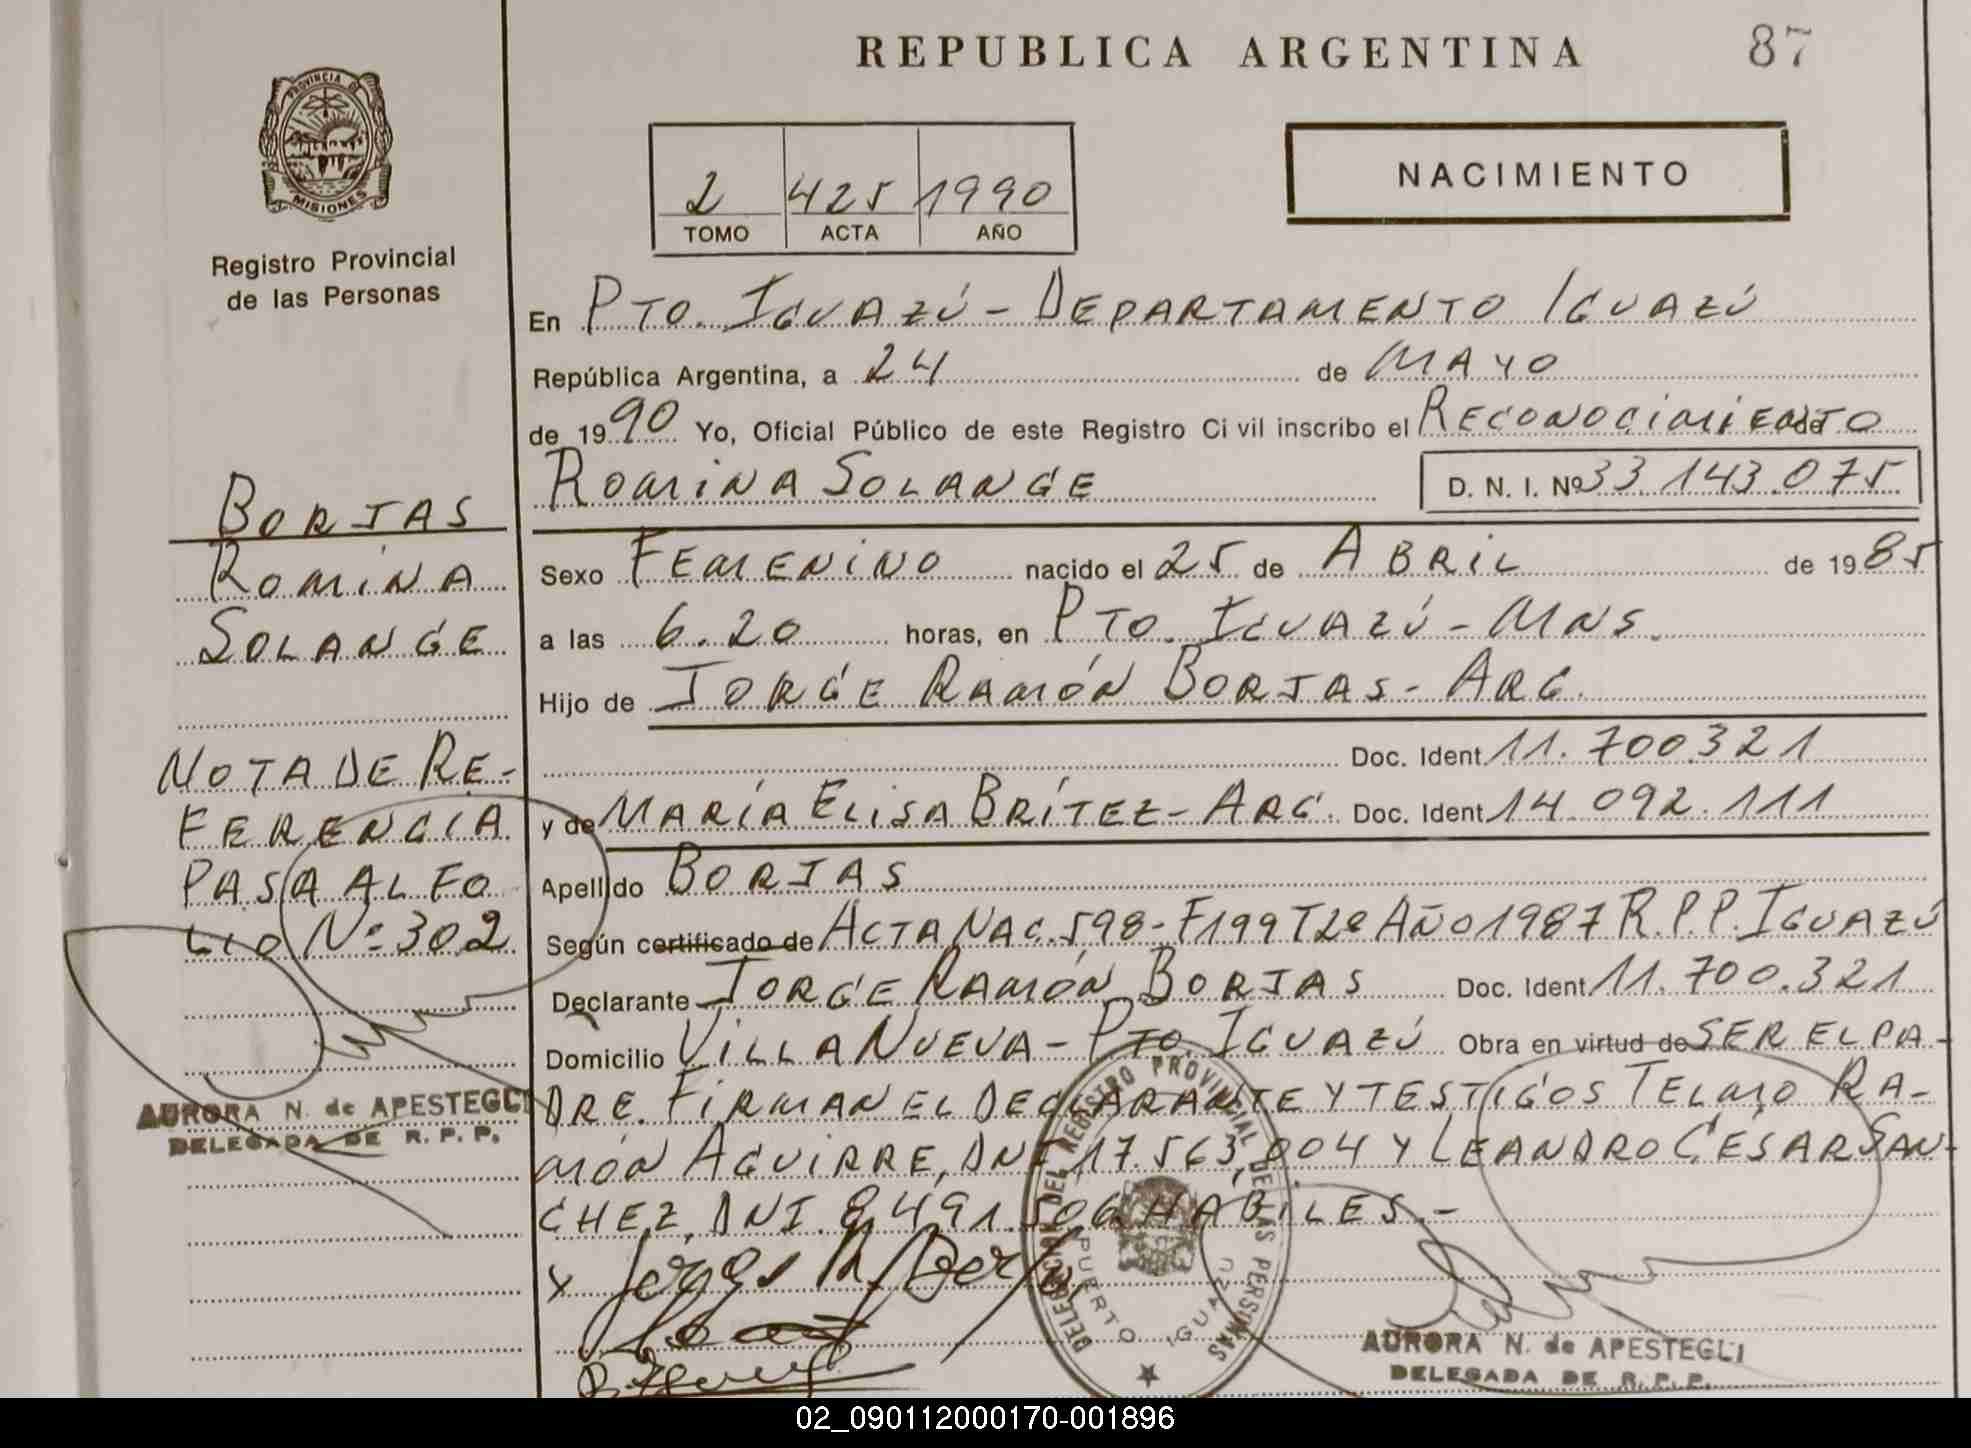 REPUBLICA ARGENTINA
87
PROVINCIA DE
MISIONES
Registro Provincial
de las Personas
2 425 1990
TOMO ACTA AÑO
NACIMIENTO
En PTO. IGUAZÚ - DEPARTAMENTO IGUAZÚ
República Argentina, a 24 de MAYO
de 1990 Yo, Oficial Público de este Registro Civil inscribo el RECONOCIMIENTO de
ROMINA SOLANGE D. N. I. Nº 33.143.075
BORJAS
ROMINA
SOLANGE
Sexo FEMENINO nacido el 25 de ABRIL de 1985
a las 6.20 horas, en PTO. IGUAZÚ - MNS.
Hijo de JORGE RAMÓN BORJAS - ARG.
Doc. Ident 11.700.321
y de MARÍA ELISA BRÍTEZ - ARG. Doc. Ident 14.092.111
Apellido BORJAS
Según certificado de ACTA NAC. 598 - F199 T2º AÑO 1987 R.P.P. IGUAZÚ
Declarante JORGE RAMÓN BORJAS Doc. Ident 11.700.321
Domicilio VILLA NUEVA - PTO. IGUAZÚ Obra en virtud de SER EL PA-
DRE. FIRMAN EL DECLARANTE Y TESTIGOS TELMO RA-
MÓN AGUIRRE, DNI 17.563.004 Y LEANDRO CÉSAR SAN-
CHEZ, DNI. 8.491.506 HABILES.-
NOTA DE RE-
FERENCIA
PASA AL FO
LIO Nº 302
AURORA N. de APESTEGUI
DELEGADA DE R. P. P.
DELEGACION DEL REGISTRO PROVINCIAL DE LAS PERSONAS
PUERTO IGUAZU
AURORA N. de APESTEGUI
DELEGADA DE R. P. P.
02_090112000170-001896